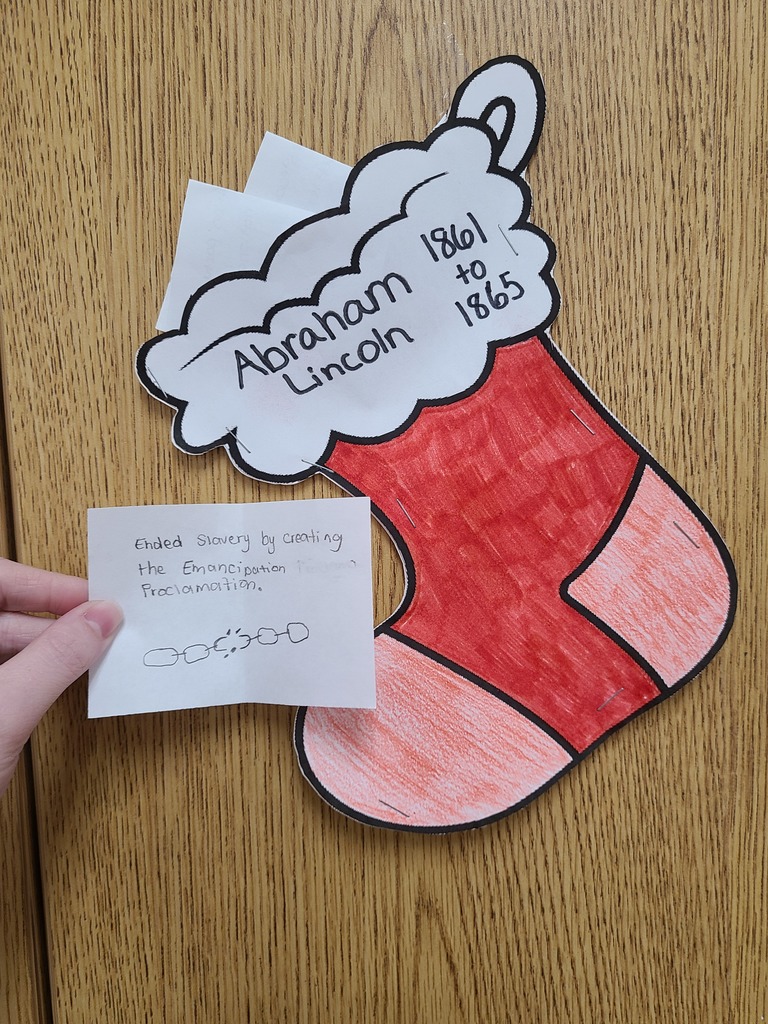 Abraham
Lincoln
1861
to
1865
Ended Slavery by creating
the Emancipation
Proclamation.